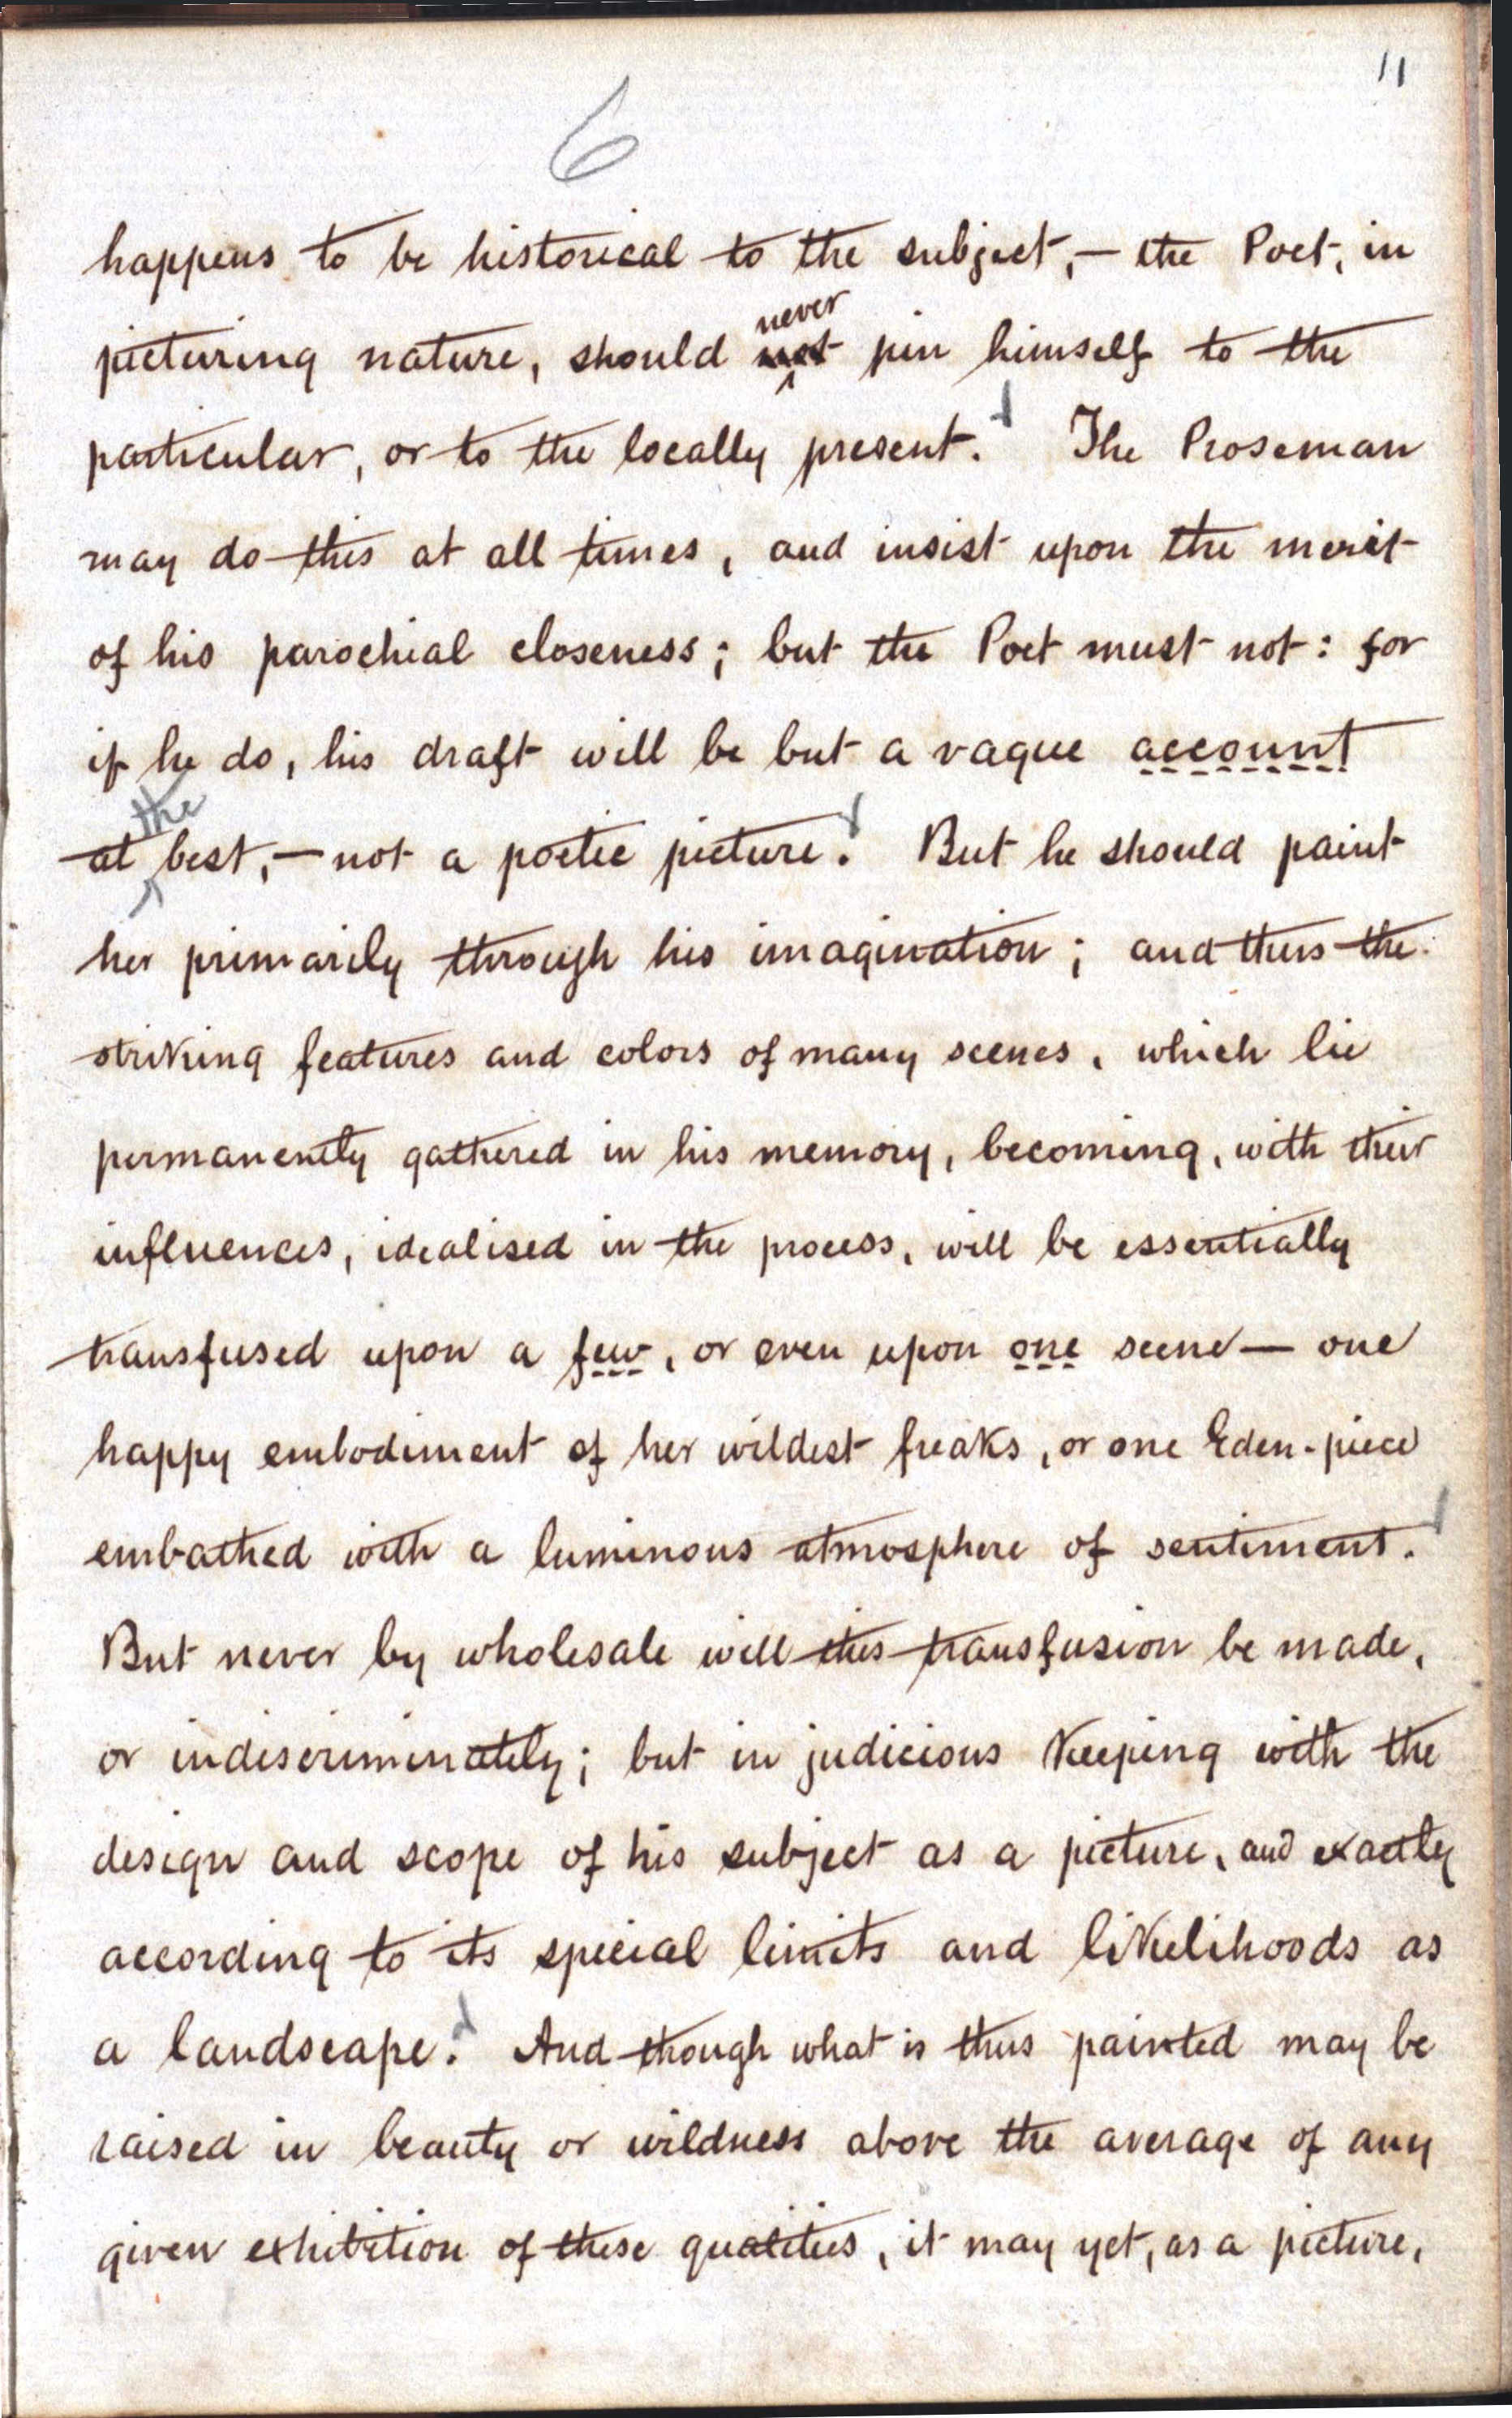 11
6
happens to be historical to the subject,— the Poet, in
never
picturing nature, should not pin himself to the
particular, or to the locally present. The Proseman
may do this at all times, and insist upon the merit
of his parochial closeness; but the Poet must not: for
if he do, his draft will be but a vague account
the
at best,— not a poetic picture. But he should paint
her primarily through his imagination; and thus the
striking features and colors of many scenes, which lie
permanently gathered in his memory, becoming, with their
influences, idealised in the process, will be essentially
transfused upon a few, or even upon one scene— one
happy embodiment of her wildest freaks, or one Eden-piece
embathed with a luminous atmosphere of sentiment.
But never by wholesale will this transfusion be made,
or indiscriminately; but in judicious keeping with the
design and scope of his subject as a picture, and exactly
according to its special limits and likelihoods as
a landscape. And though what is thus painted may be
raised in beauty or wildness above the average of any
given exhibition of these qualities, it may yet, as a picture,